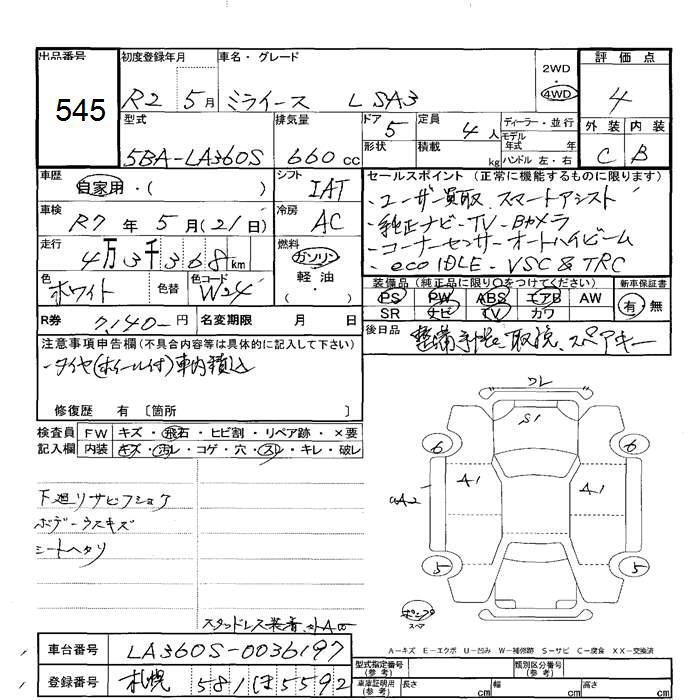 出品番号
545
初度登録年月 車名・グレード
R2 5月 ミライース L SA3
2WD
4WD
評価点
4
外装 内装
C B
型式 排気量 ドア 定員 ディーラー・並行
5BA-LA360S 660cc 5 4人
形状 積載 kg モデル年式 年式
ハンドル 左・右
車歴
自家用・( )
シフト IAT
車検
R7年5月(21日)
冷房 AC
走行
4万3千368km
燃料
ガソリン
軽油
・( )
色 ホワイト 色替 色コード W24
R券 7,140-円 名変期限 月 日
セールスポイント(正常に機能するものに限ります)
・ユーザー買取 スマートアシスト
・純正ナビ・TV・Bカメラ
・コーナーセンサー オートハイビーム
・eco IDLE・VSC & TRC
装備品(純正品に限り○をつけてください)
PS PW ABS エアB AW
SR ナビ TV カワ
新車保証書
有・無
後日品 整備手帳 取説 スペアキー
注意事項申告欄(不具合内容等は具体的に記入して下さい)
・タイヤ(ホイール付)車内積込
修復歴 有〔箇所 〕
検査員記入欄
FW キズ・飛石・ヒビ割・リペア跡・×要
内装 キズ・汚レ・コゲ・穴・スレ・キレ・破レ
下廻リサビフショク
ボデーウスキズ
シートヘタリ
スタッドレス装着
ワレ
S1
6 6
A1 A1
A2
5 5
スペア
A-キズ E-エクボ U-凹み W-補修跡 S-サビ C-腐食 XX-交換済
車台番号 LA360S-0036197
登録番号 札幌 581 ほ 5592
型式指定番号(参考) 類別区分番号(参考)
車庫証明用(参考) 長さ cm 幅 cm 高さ cm